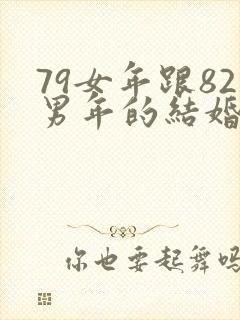 79女年跟82
男年的結婚
你也要起舞嗎